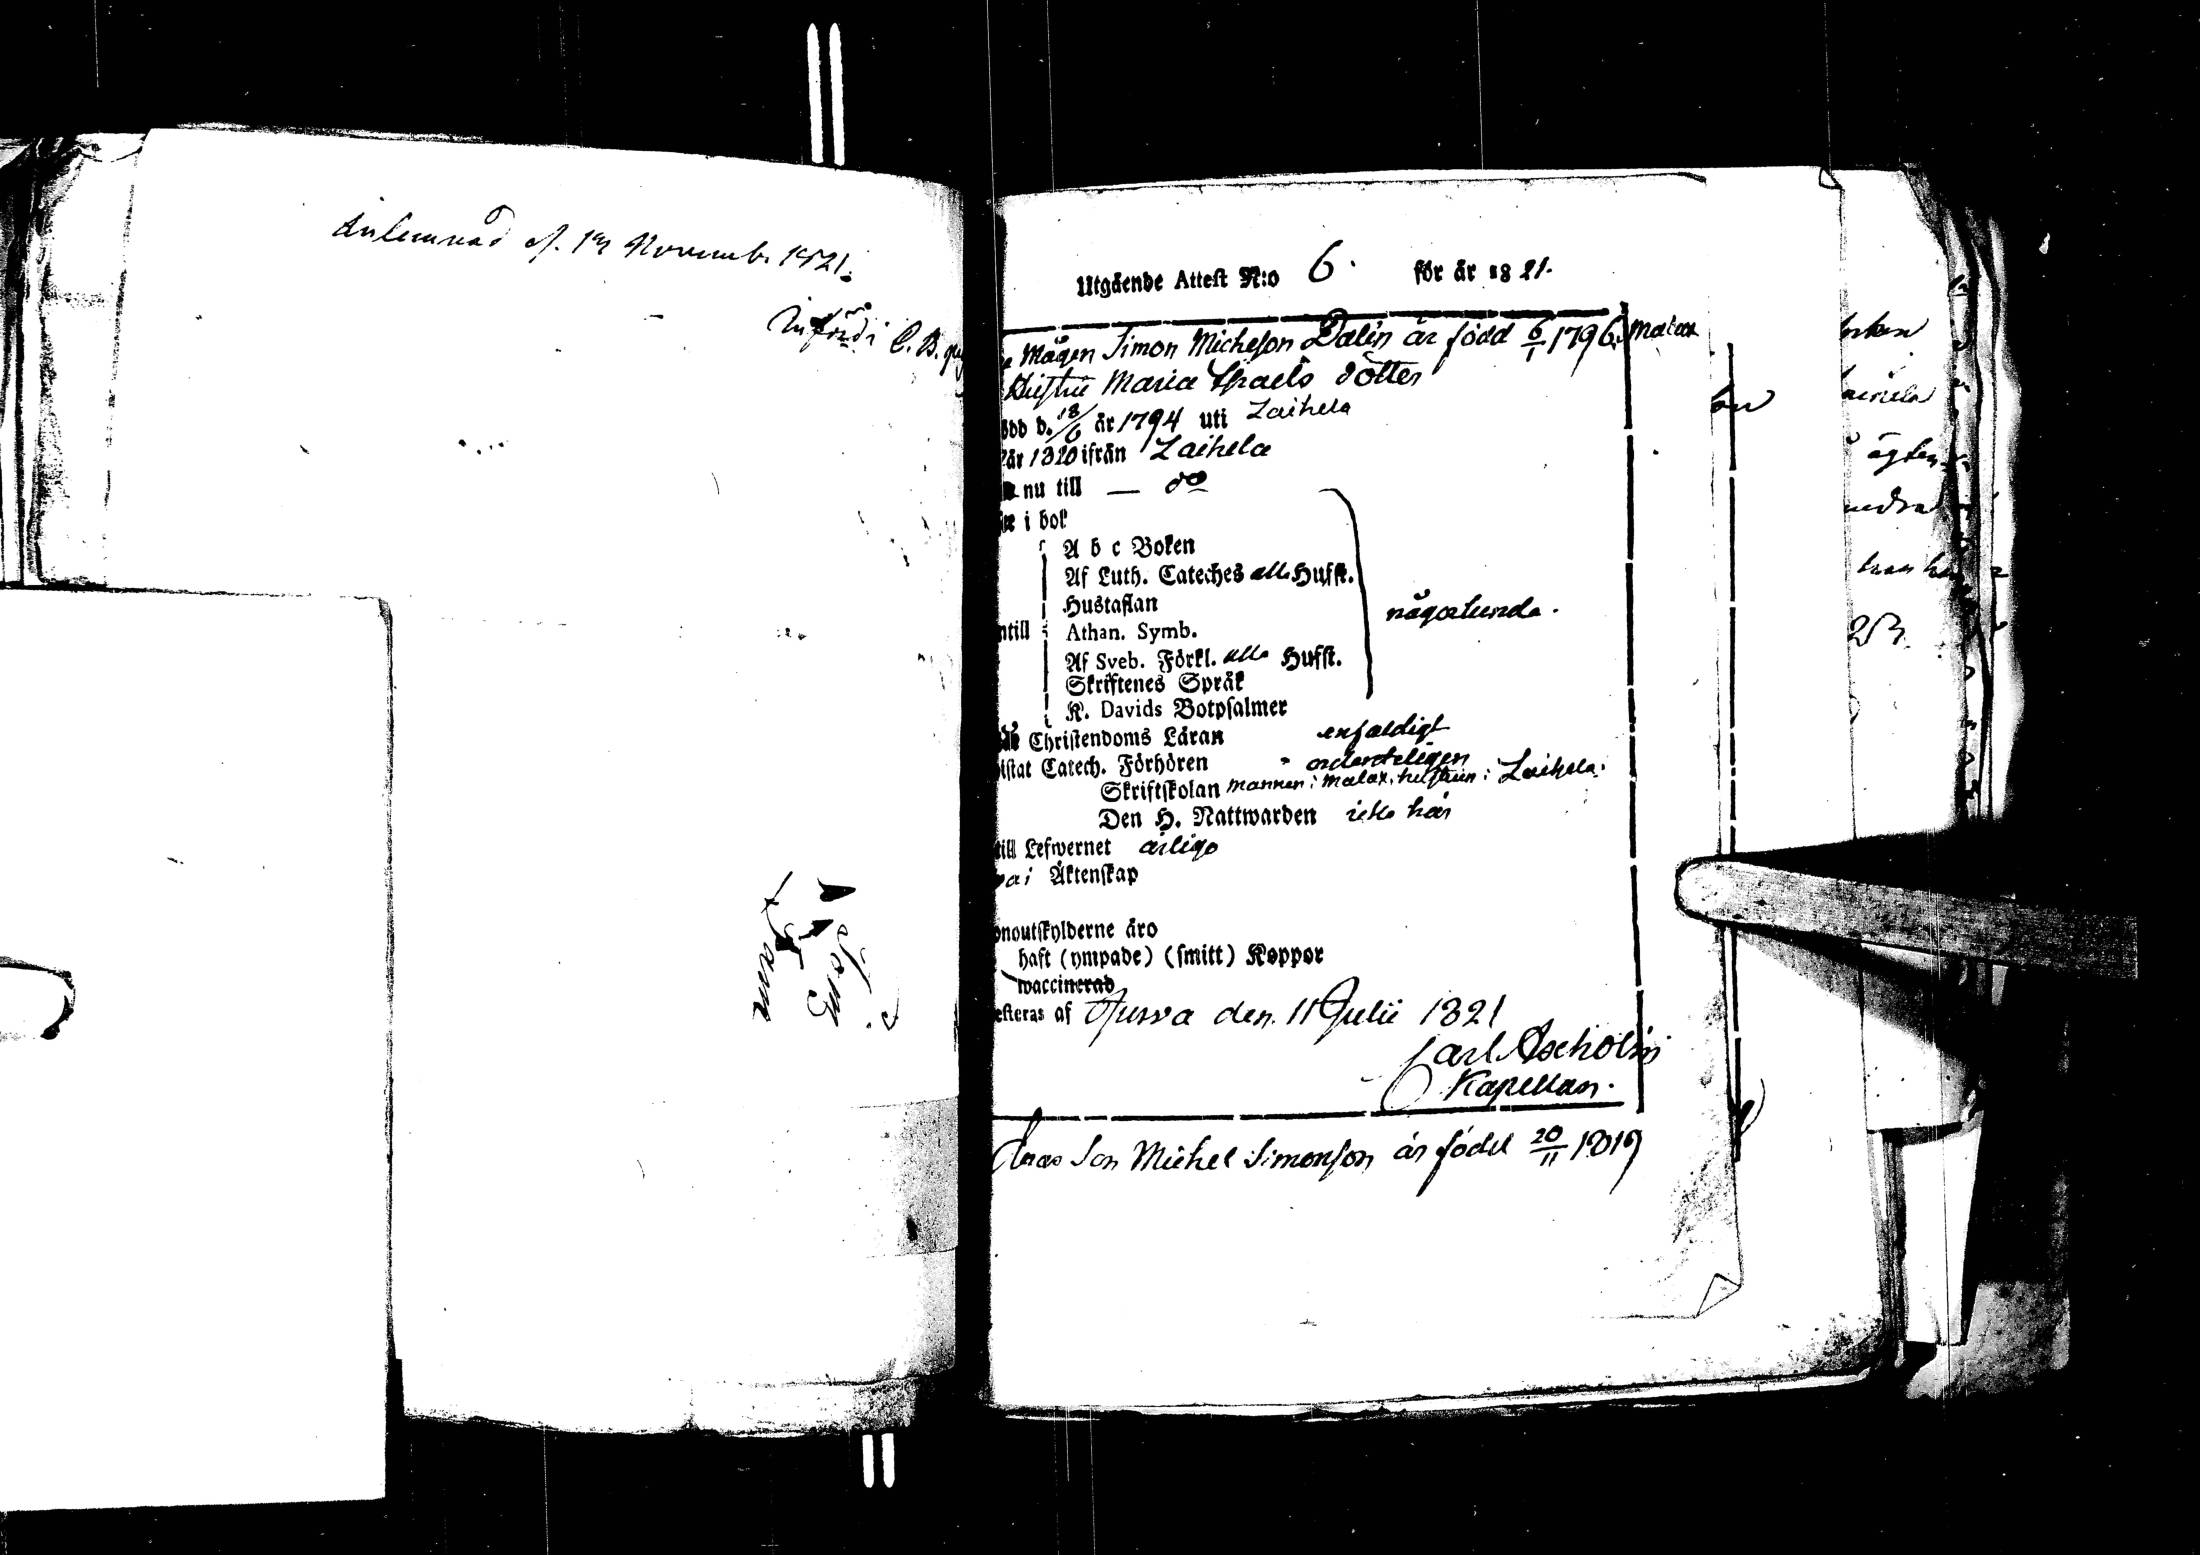 Inlemnad d. 19 Novemb. 1821.
Införd i C. B. pag
Utgående Attest N:o 6. för år 1821.
Mågen Simon Michelson Dalin är född 6/1 1796. i Malax
Hustru Maria Israels dotter
född d. 18/6 år 1794 uti Laihela
år 1820 ifrån Laihela
nu till — do
i bok
A b c Boken
Af Luth. Cateches alla Hufst.
Hustaflan
ntill Athan. Symb.
Af Sveb. Förkl. alla Hufst.
Skriftenes Språk
K. Davids Botpsalmer
någorlunda.
Christendoms Läran enfaldigt
istat Catech. Förhören ordenteligen
Skriftskolan mannen i Malax, hustrun i Laihela.
Den H. Nattwarden icke här
till Lefwernet ärliga
i Äktenskap
onoutskylderne äro
haft (ympade) (smitt) Koppor
waccinerad
esteras af Jurva den 11 Julii 1821
Carl Aschölin
Kapellan.
deras Son Michel Simonson är född 20/11 1819